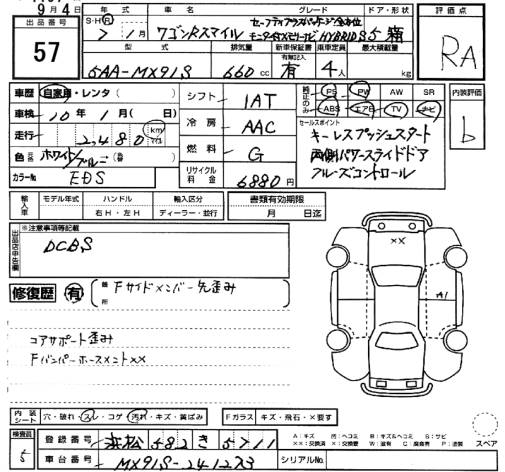 9月4日
出品番号
57
年式 車名 グレード ドア・形状
S・H・R 7年1月 ワゴンRスマイル HYBRID S 5 箱
型式 排気量 新車保証書 乗車定員 最大積載量
有無記入
5AA-MX91S 660cc 有 4人 kg
評価点
RA
車歴 自家用・レンタ( )
車検 10年1月( 日)
走行 2,480 km マイル
色 ホワイト/ブルー(替 )
カラーNo. EDS
シフト IAT
冷房 AAC
燃料 G
リサイクル料金 6880円
純正のみ PS PW AW SR
ABS エアB TV ナビ
セールスポイント
キーレスプッシュスタート
両側パワースライドドア
クルーズコントロール
内装評価
b
輸入車 モデル年式 ハンドル 輸入区分
右H・左H ディーラー・並行
書類有効期限
月 日迄
出品店申告欄
※注意事項等記載
DCBS
修復歴 有 箇所 Fサイドメンバー先歪み
コアサポート歪み
Fバンパーホースメント××
××
A1
内装シート 穴・破れ・スレ・コゲ 汚れ・キズ・黄ばみ Fガラス キズ・飛石・×要す
検査員
5
登録番号 浜松 582 き 5711
車台番号 MX91S-241223
シリアルNo.
A：キズ U：ヘコミ B：キズ&ヘコミ S：サビ
××：交換済 X：交換要 W：波有 C：腐食 P：塗装
スペア